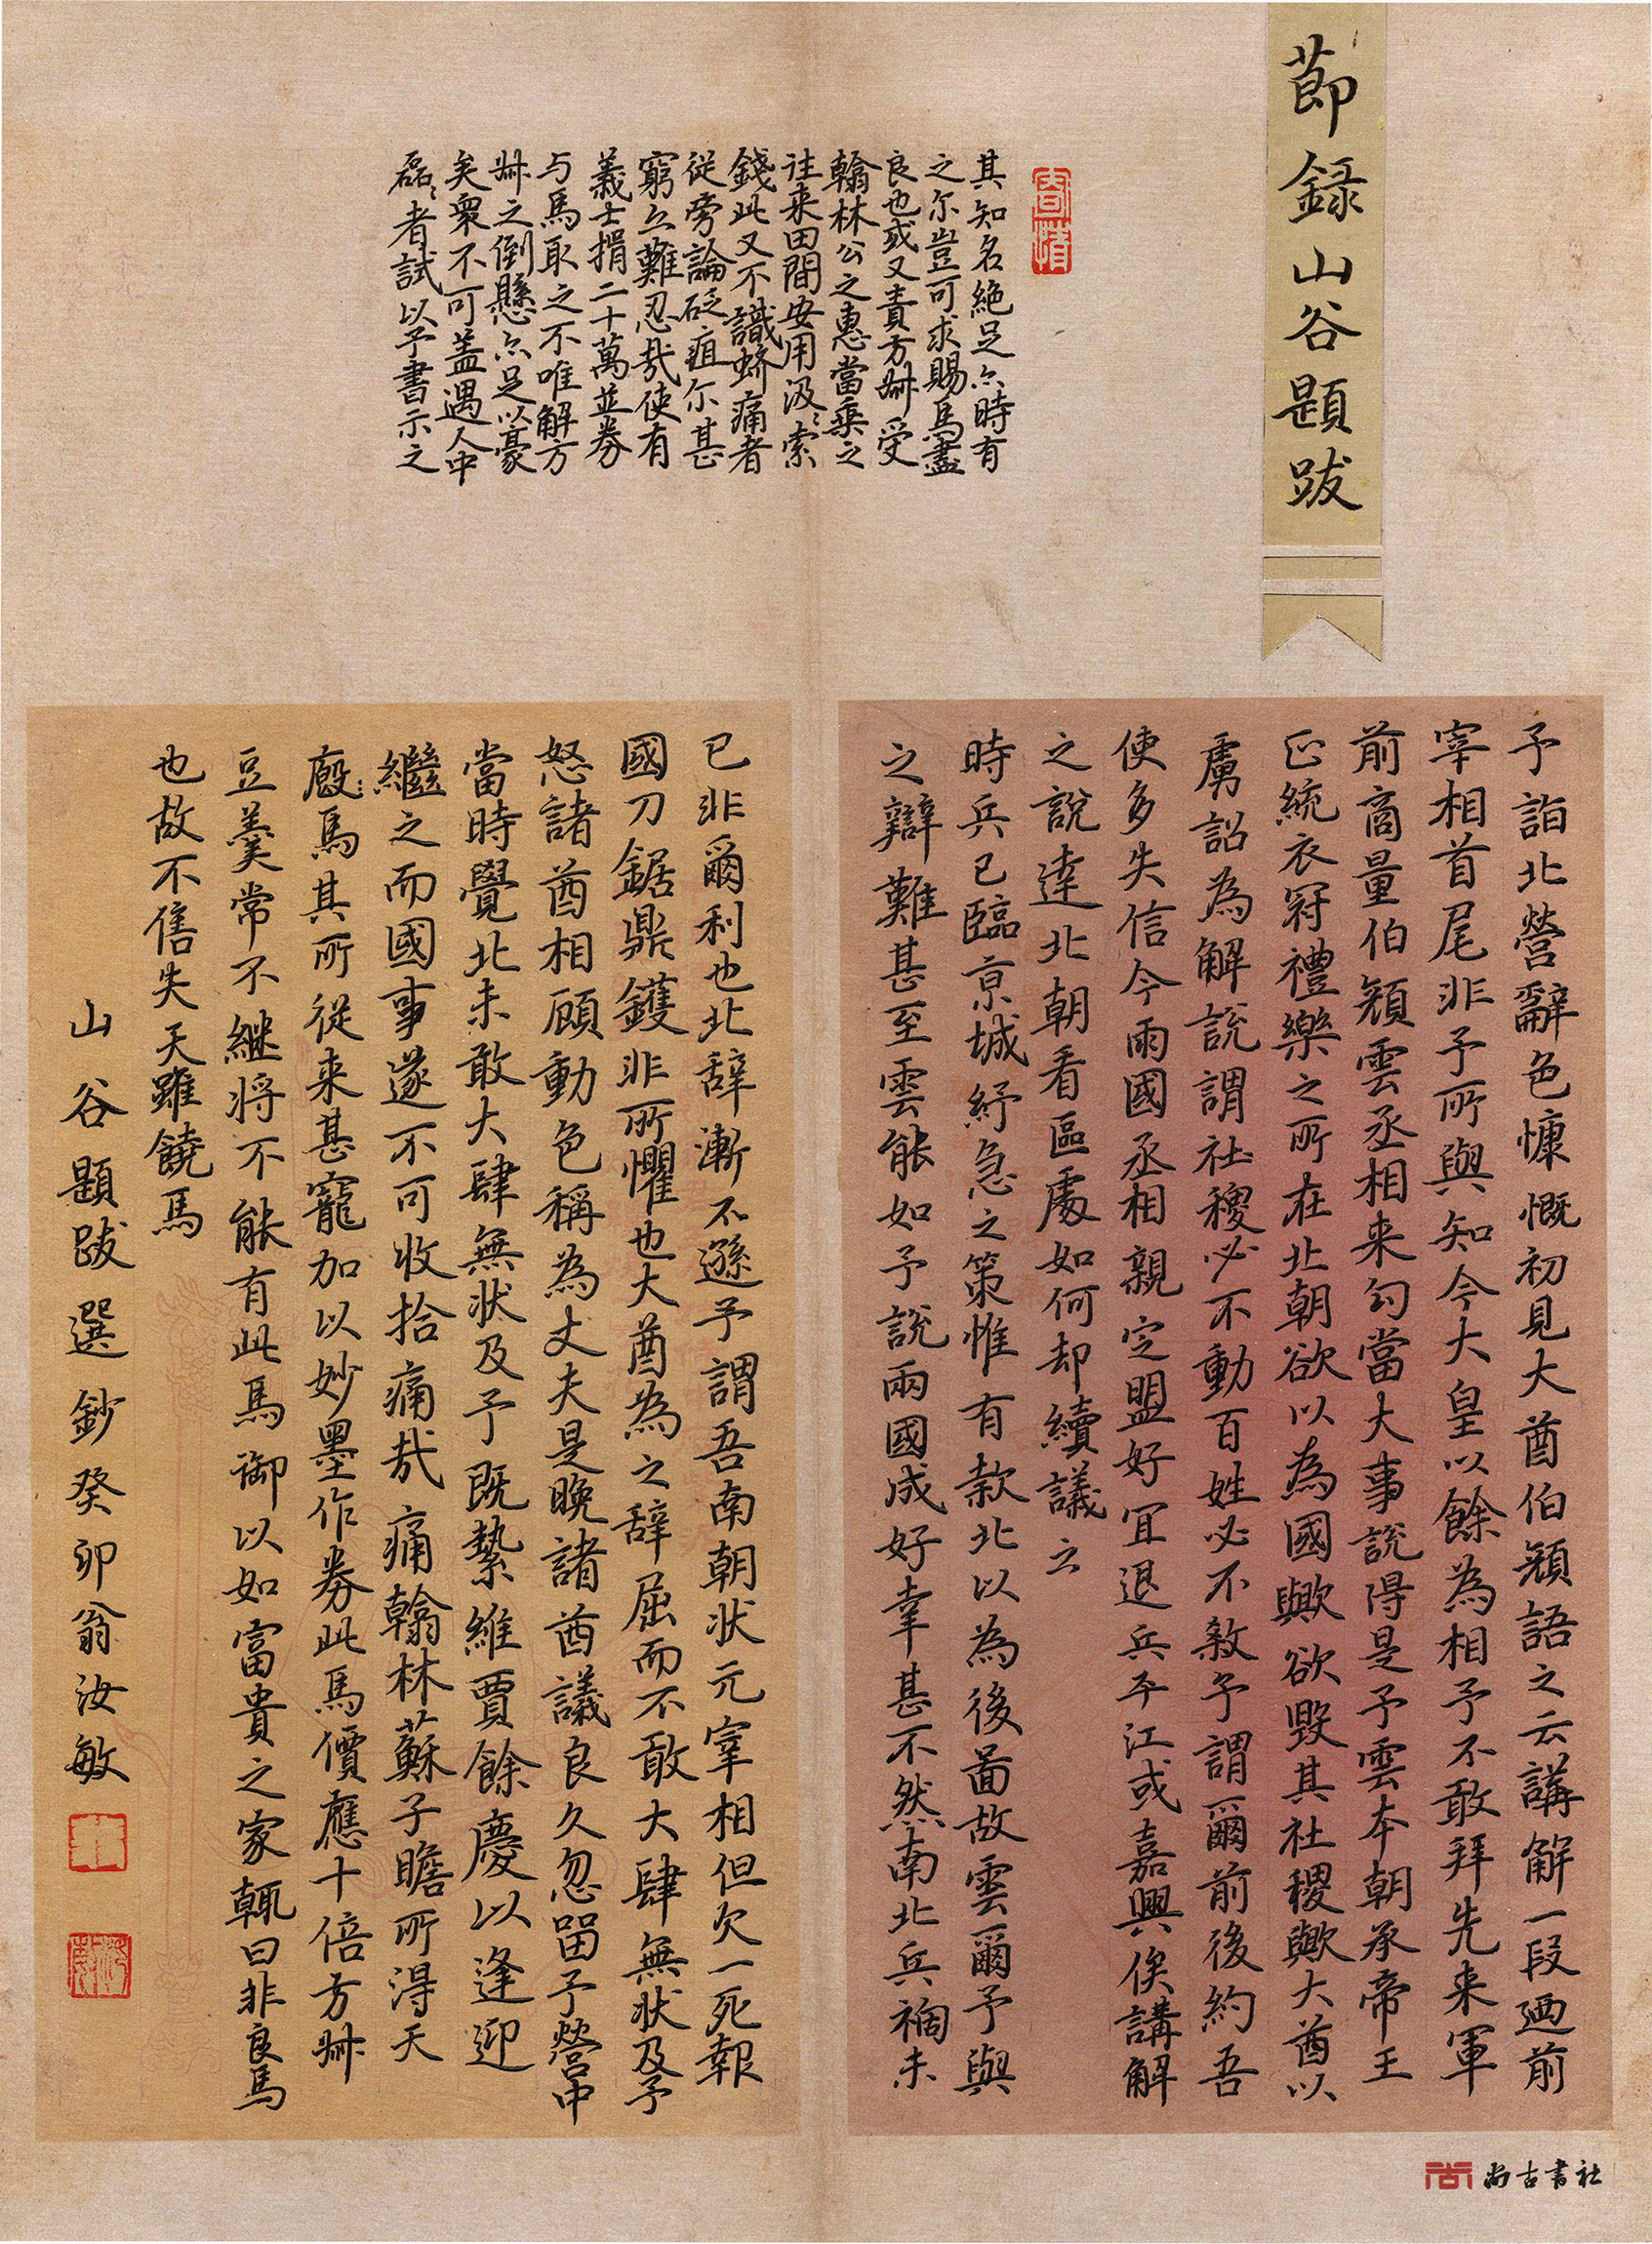 節録山谷題跋
其知名絶足尓時有
之尔豈可求賜馬盡
良也或又責方叔受
翰林公之惠當乘之
往来田間安用汲〻索
錢此又不識蛴痛者
從旁論砭疽尔甚
窮亦難忍哉使有
義士捐二十萬並券
与馬取之不唯解方
叔之倒懸亦足以豪
矣衆不可蓋遇人中
磊〻者試以予書示之
予詣北營辭色慷慨初見大酋伯顏語之云講解一段廼前
宰相首尾非予所與知今大皇以餘為相予不敢拜先来軍
前商量伯顏雲丞相来勾當大事説得是予雲本朝承帝王
正統衣冠禮樂之所在北朝欲以為國歟欲毀其社稷歟大酋以
虜詔為解説謂社稷必不動百姓必不殺予謂爾前後約吾
使多失信今兩國丞相親定盟好宜退兵平江或嘉興俟講解
之說達北朝看區處如何却續議之
時兵已臨京城紓急之策惟有款北以為後啚故雲爾予與
之辯難甚至雲能如予說兩國成好幸甚不然南北兵禍未
已非爾利也北辞漸不遜予謂吾南朝状元宰相但欠一死報
國刀鋸鼎鑊非所懼也大酋為之辞屈而不敢大肆無状及予
怒諸酋相顧動色稱為丈夫是晚諸酋議良久忽留予營中
當時覺北未敢大肆無状及予既縶維賈餘慶以逢迎
繼之而國事遂不可收拾痛哉痛翰林蘇子瞻所淂天
廄馬其所從来甚寵加以妙墨作券此馬價應十倍方叔
豆羹常不継将不能有此馬御以如富貴之家輒曰非良馬
也故不售失天雖饒馬
山谷題跋選鈔癸卯翁汝敏
尚古書社